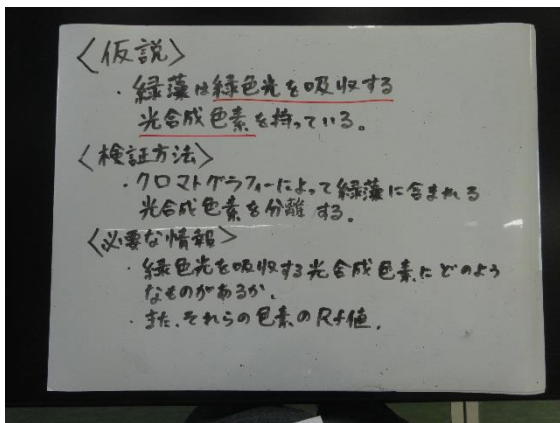 〈仮説〉
・緑藻は緑色光を吸収する
光合成色素を持っている。
〈検証方法〉
・クロマトグラフィーによって緑藻に含まれる
光合成色素を分離する。
〈必要な情報〉
・緑色光を吸収する光合成色素にどのよう
なものがあるか。
・また、それらの色素のRf値.